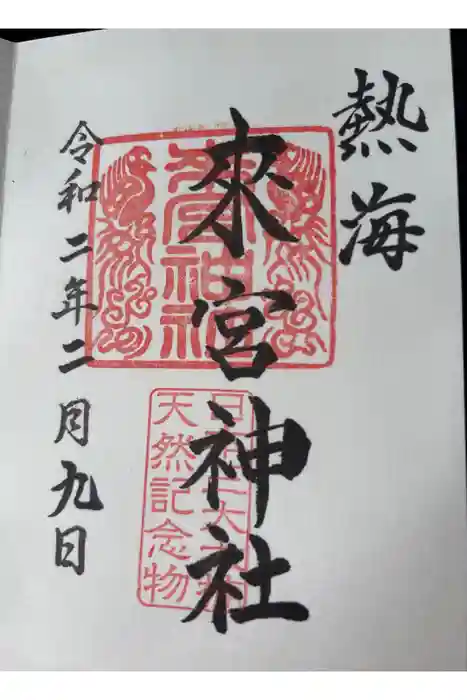 熱海
來宮神社
來宮神社
天然記念物
令和二年二月九日